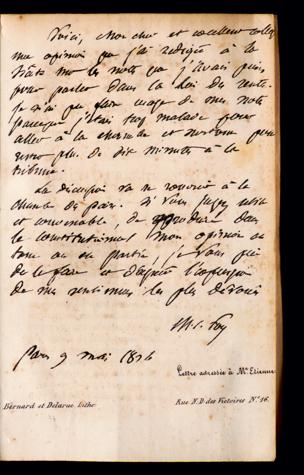 Voici, mon cher et excellent collègue
mon opinion que j'ai rédigée à la
hâte sur les notes que j'avais prises
pour parler dans la Loi des rentes.
je n'ai pu faire usage de mes notes
parceque j'étais trop malade pour
aller à la chambre et surtout pour
rester plus de dix minutes à la
tribune.
La discussion va se rouvrir à la
chambre des pairs. Si vous jugez utile
et convenable, de reproduire dans
le constitutionnel mon opinion en
tout ou en partie, je vous prie
de le faire et d'agréer l'assurance
de mes sentimens les plus dévoués
M. S. Foy
Paris 9 mai 1824
Lettre adressée à Mr. Etienne
Bernard et Delarue Litho.
Rue N.D. des Victoires No. 16.